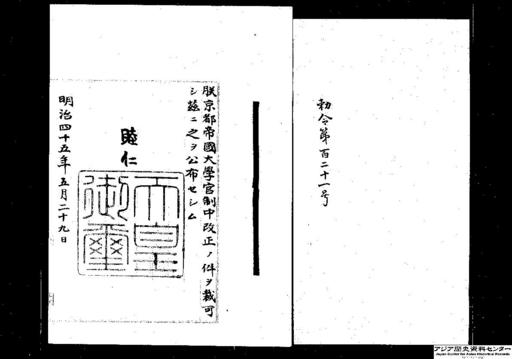 勅令第百二十一号
朕京都帝國大學官制中改正ノ件ヲ裁可
シ茲ニ之ヲ公布セシム
睦仁
天皇
御璽
明治四十五年五月二十九日
アジア歴史資料センター
Japan Center for Asian Historical Records